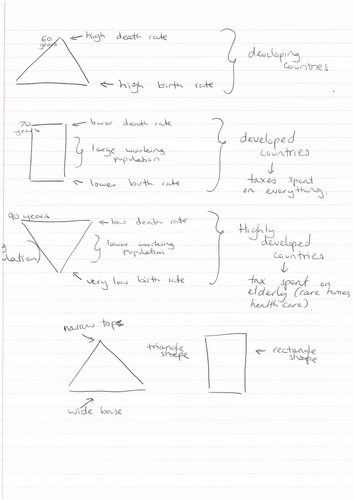 60 years
high death rate
high birth rate
developing
countries
70 years
lower death rate
large working
population
lower birth rate
developed
countries
taxes spent
on everything.
90 years
low death rate
lower working
population
very low birth rate
Highly
developed
countries
tax spent on
elderly (care homes,
health care)
narrow tops
triangle
shape
rectangle
shape
wide base